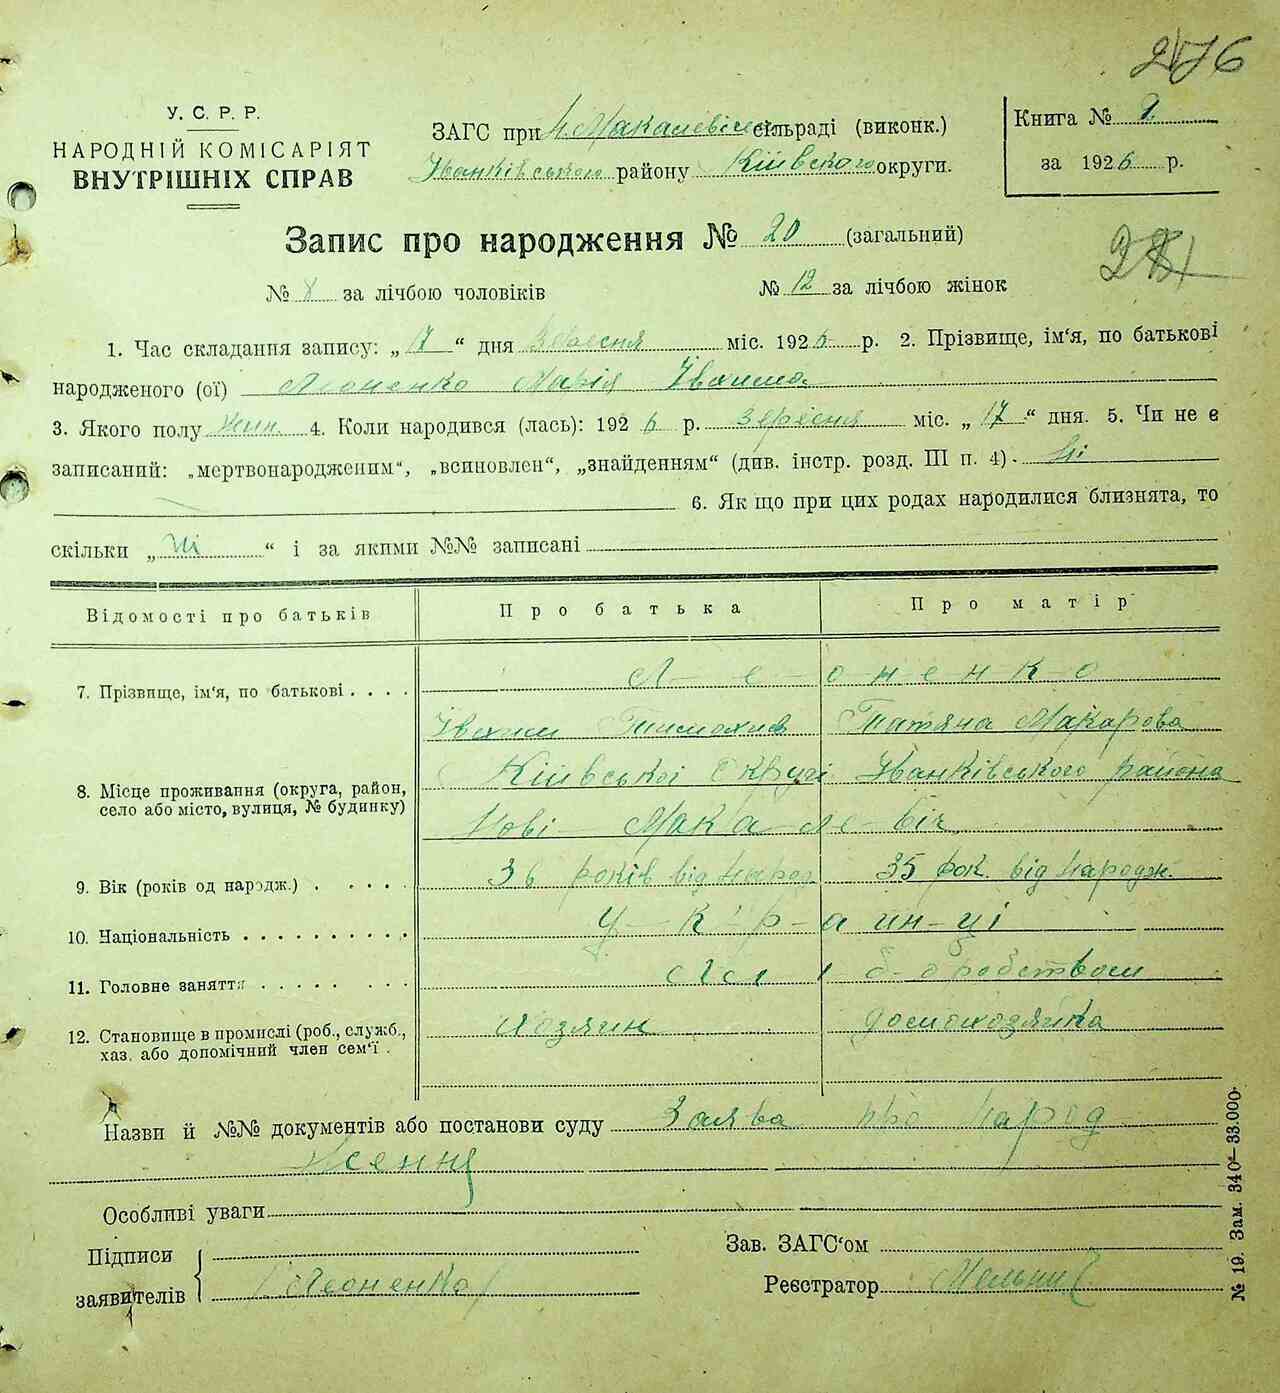 276
У. С. Р. Р.
НАРОДНІЙ КОМІСАРІЯТ
ВНУТРІШНІХ СПРАВ
ЗАГС при Н. Макалевіс сільраді (виконк.)
Іванківського району Київського округи.
Книга №
за 1926 р.
Запис про народження № 20 (загальний)
№ 8 за лічбою чоловіків № 12 за лічбою жінок
1. Час складання запису: „17“ дня Вересня міс. 1926 р. 2. Прізвище, ім‘я, по батькові
народженого (ої) Леоненко Марія Івхима
3. Якого полу жин. 4. Коли народився (лась): 1926 р. Вересня міс. „17“ дня. 5. Чи не є
записаний: „мертвонародженим“, „всиновлен“, „знайденням“ (див. інстр. розд. III п. 4). Ні
6. Як що при цих родах народилися близнята, то
скільки „Ні“ і за якими №№ записані
Відомості про батьків Про батька Про матір
7. Прізвище, ім‘я, по батькові . . . . Л-е-о-н-е-н-к-о
Івхим Тимохив Татяна Макарова
8. Місце проживання (округа, район, село або місто, вулиця, № будинку) Київської Округі Іванківського района
Нові Мака-ле-віч
9. Вік (років од народж.) . . . . . 36 років від народ 35 рок. від народж.
10. Національність . . . . . . . . . . У-к-р-а-ин-ці
11. Головне заняття . . . . . . . . .
12. Становище в промислі (роб., служб., хаз. або допомічний член сем‘ї . Хозяин домохозяйка
Назви й №№ документів або постанови суду Заява про народ
ження
Особливі уваги
Підписи заявителів Леоненко
Зав. ЗАГС‘ом
Реєстратор Мельнич
№ 19. Зам. 340—33.000.